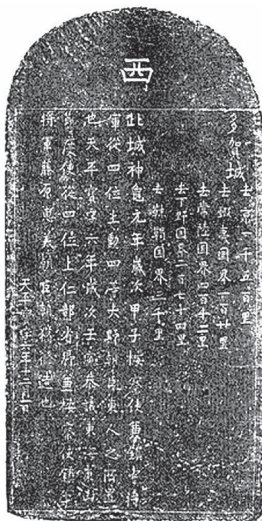 西
多賀城
去京一千五百里
去蝦夷国界一百廿里
去常陸国界四百十二里
去下野国界二百七十四里
去靺鞨国界三千里
此城神龜元年歳次甲子按察使兼鎮守将
軍従四位上勲四等大野朝臣東人之所置
也天平寳字六年歳次壬寅参議東海東山
節度使従四位上仁部省卿兼按察使鎮守
将軍藤原恵美朝臣朝獦修造也
天平寳字六年十二月一日